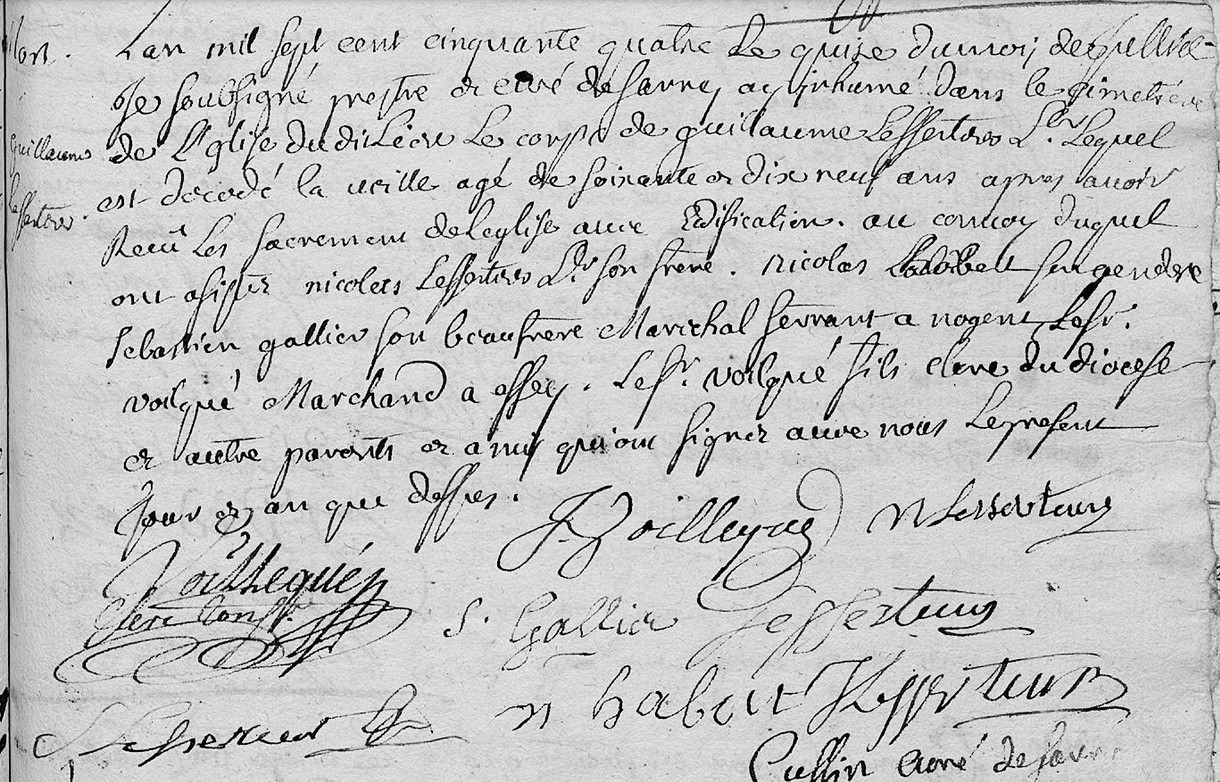 Mort.
Guillaume
Lesserteur.
Lan mil sept cent cinquante quatre Le quize dumois de Juillet
Je soubsigné prestre et curé de sarrey ay inhumé dans le simetiere
de L'Eglise dudit Lieu Le corps de guillaume Lesserteur Lr Lequel
est decedé la veille agé de soixante et dix neuf ans apres avoir
Receu Les sacrement de leglise avec Edification. au convoy duquel
ont asister nicolas Lesserteur Lr son frere. nicolas son gendre
sebastien gallier son beaufrere Marichal ferrant a nogent, Le sr.
voilqué Marchand a essey. Le sr. voilqué fils clerc du diocese
et autre parents et amis qui ont signez avec nous Le present
Jour et an que dessus.
J. Voillequé n Lesserteur
Voillequé
Clerc tonsr.
S. Gallier Lesserteur
n habert Lesserteur
curé de sarrey